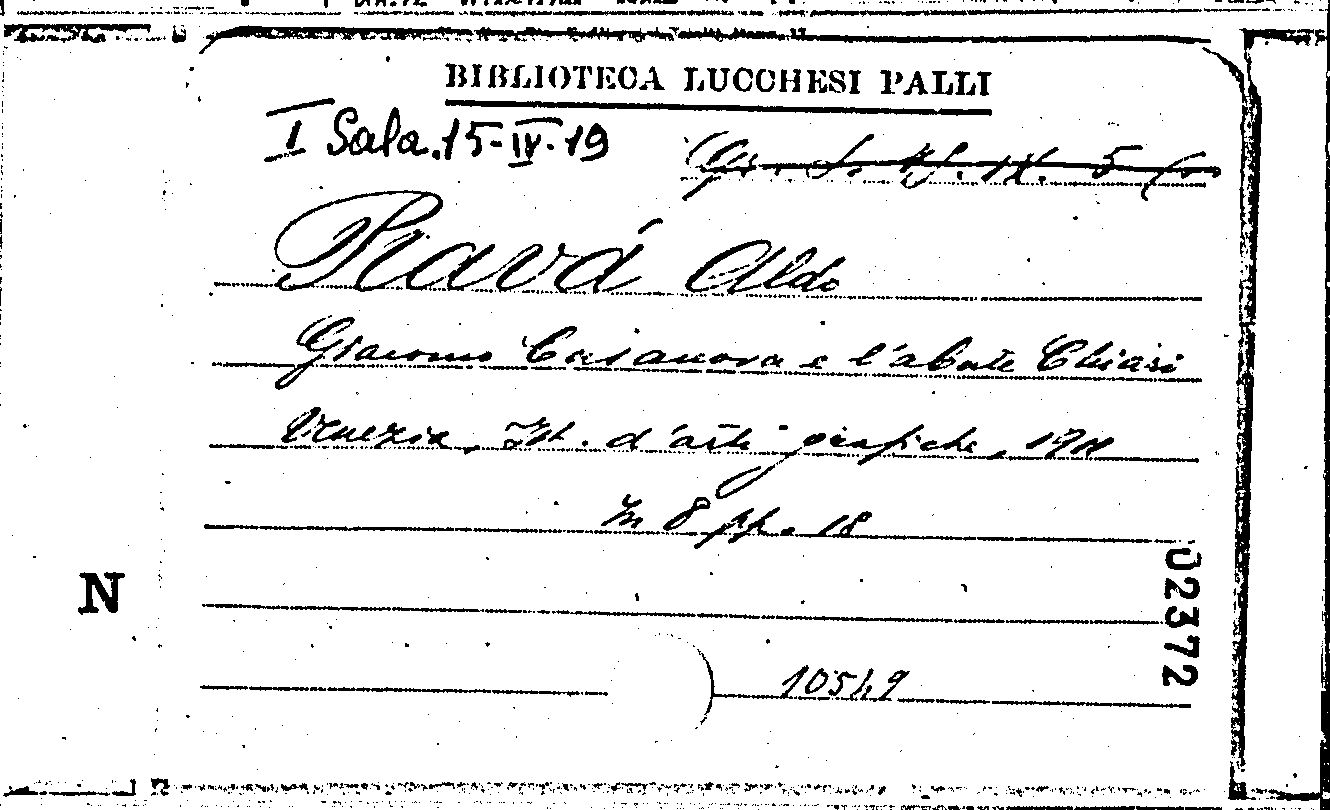 BIBLIOTECA LUCCHESI PALLI
I Sala.15-IV-19
Ravá Aldo
Giacomo Casanova e l'abate Chiari
Venezia, Ist. d'arti grafiche, 1911
In 8 pp. 18
N
02372
10549